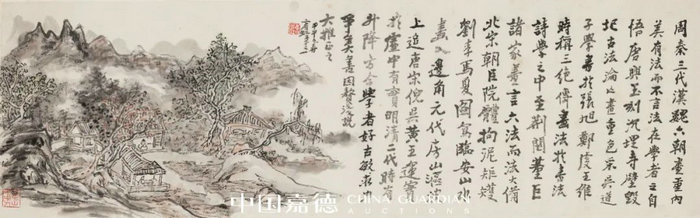 周秦三代漢魏六朝畫重內
美有法而不言法在學者之自
悟唐興刻沉埋寺壁毀
圮古法淪畫重色采吳道
子學書於張旭鄭虔王維
時稱三絕傳畫法於書法
詩學之中至荊關董巨
諸家畫言六法而法大備
北宗朝臣院體拘泥矩矱
劉李馬夏圖寫臨安山水
畫入邊角元代房山漚
上追唐宋倪吳黃王遂實
於虛中有實明清二代時有
升降方今學者好古敏求
爭美善因贅說
大推正之
中国嘉德
CHINA GUARDIAN
AUCTIONS